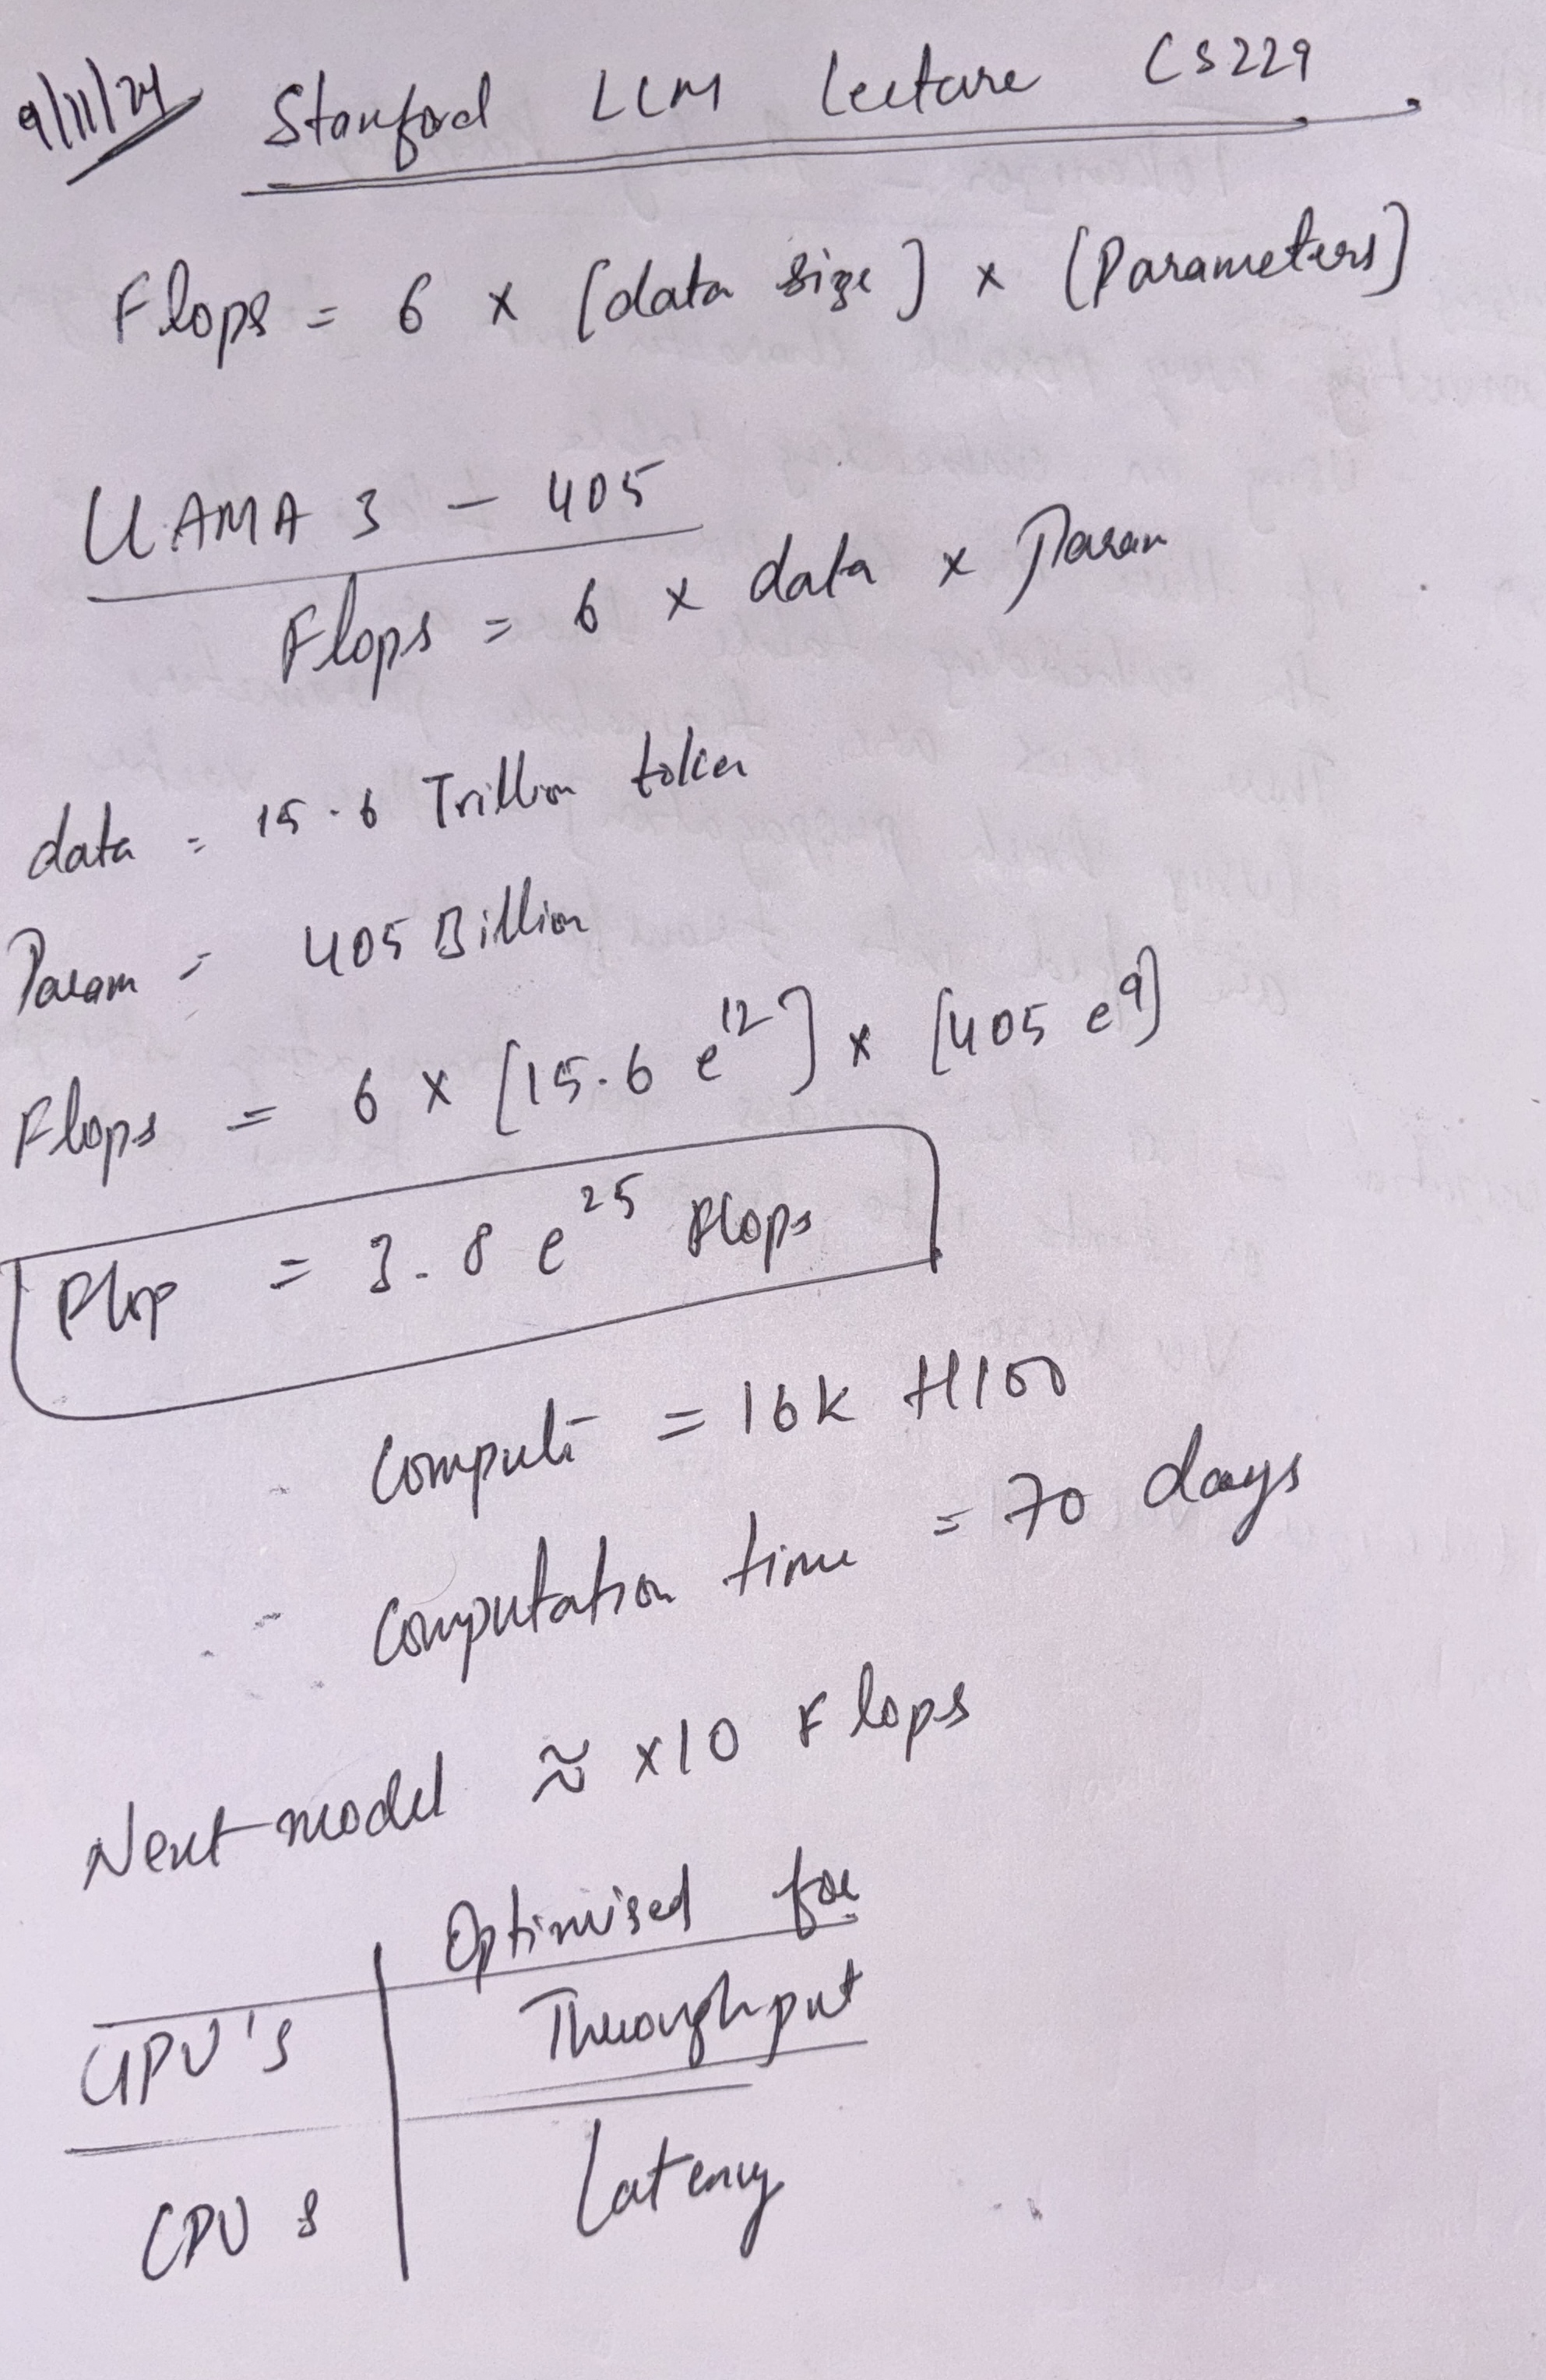 9/11/24 Stanford LLM Lecture CS229
Flops = 6 x [data size] x [Parameters]
LLAMA 3 - 405
Flops = 6 x data x Param
data = 15.6 Trillion token
Param = 405 Billion
Flops = 6 x [15.6 e¹²] x [405 e⁹]
Flop = 3.8 e²⁵ Flops
Compute = 16k H100
Computation time = 70 days
Next model ≈ x10 Flops
Optimised for
GPU's Throughput
CPUs Latency